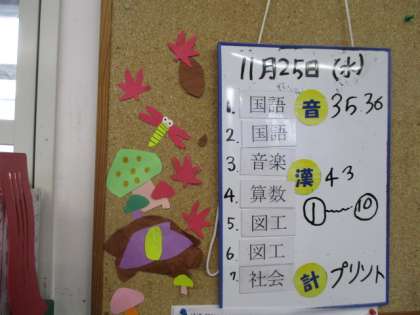 11月25日(水)
1. 国語 音 35.36
2. 国語
3. 音楽
漢 43
4. 算数
①〜⑩
5. 図工
6. 図工
7. 社会 計 プリント